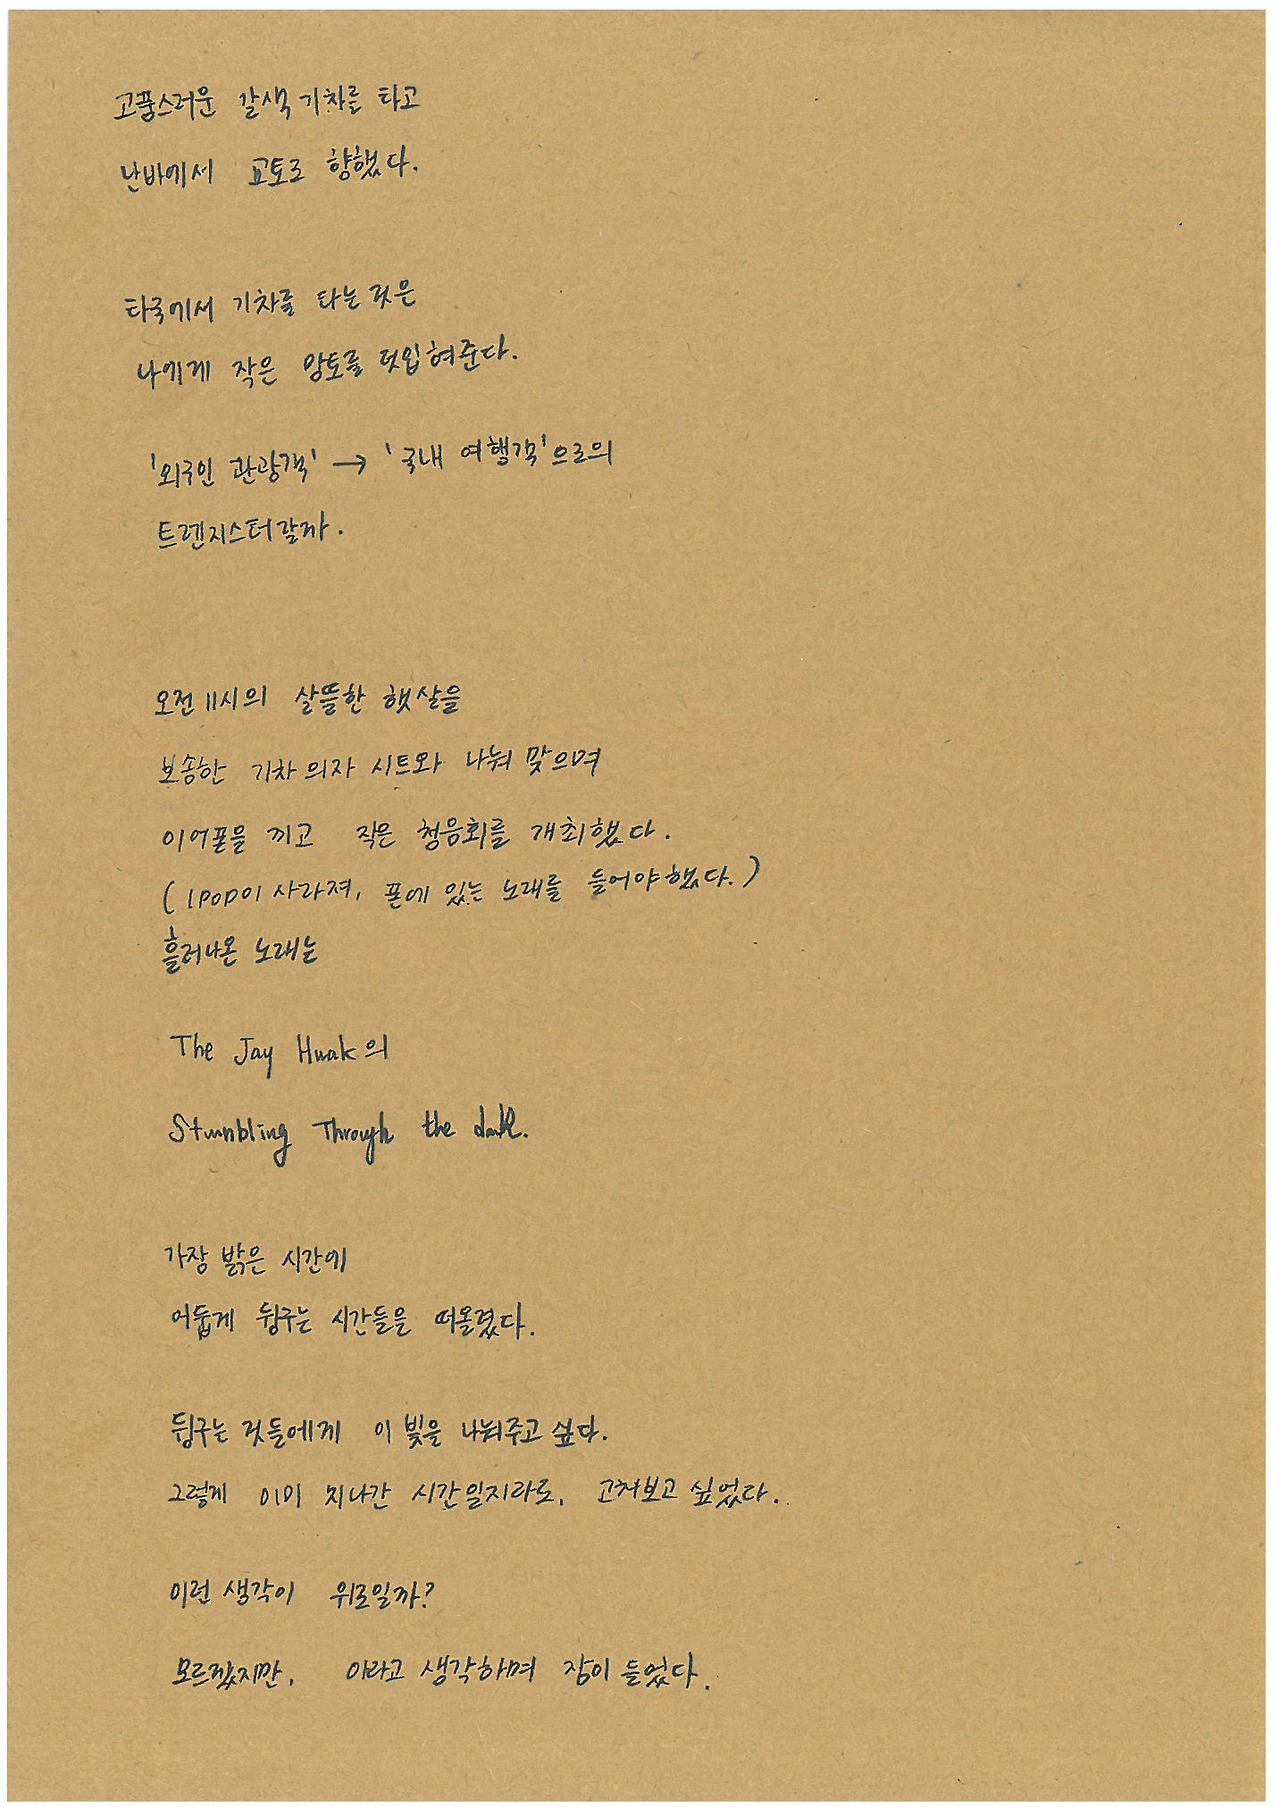 고풍스러운 갈색 기차를 타고
난바에서 교토로 향했다.
타국에서 기차를 타는 것은
나에게 작은 망토를 덧입혀준다.
'외국인 관광객' → '국내 여행객'으로의
트렌지스터랄까.
오전 11시의 살뜰한 햇살을
보송한 기차 의자 시트와 나눠 맞으며
이어폰을 끼고 작은 청음회를 개최했다.
(IPOD이 사라져, 폰에 있는 노래를 들어야했다.)
흘러나온 노래는
The Jay Huak의
Stumbling Through the dark.
가장 밝은 시간에
어둡게 뒹구는 시간들을 떠올렸다.
뒹구는 것들에게 이 빛을 나눠주고 싶다.
그렇게 이미 지나간 시간일지라도, 고쳐보고 싶었다.
이런 생각이 위로일까?
모르겠지만, 이라고 생각하며 잠이 들었다.